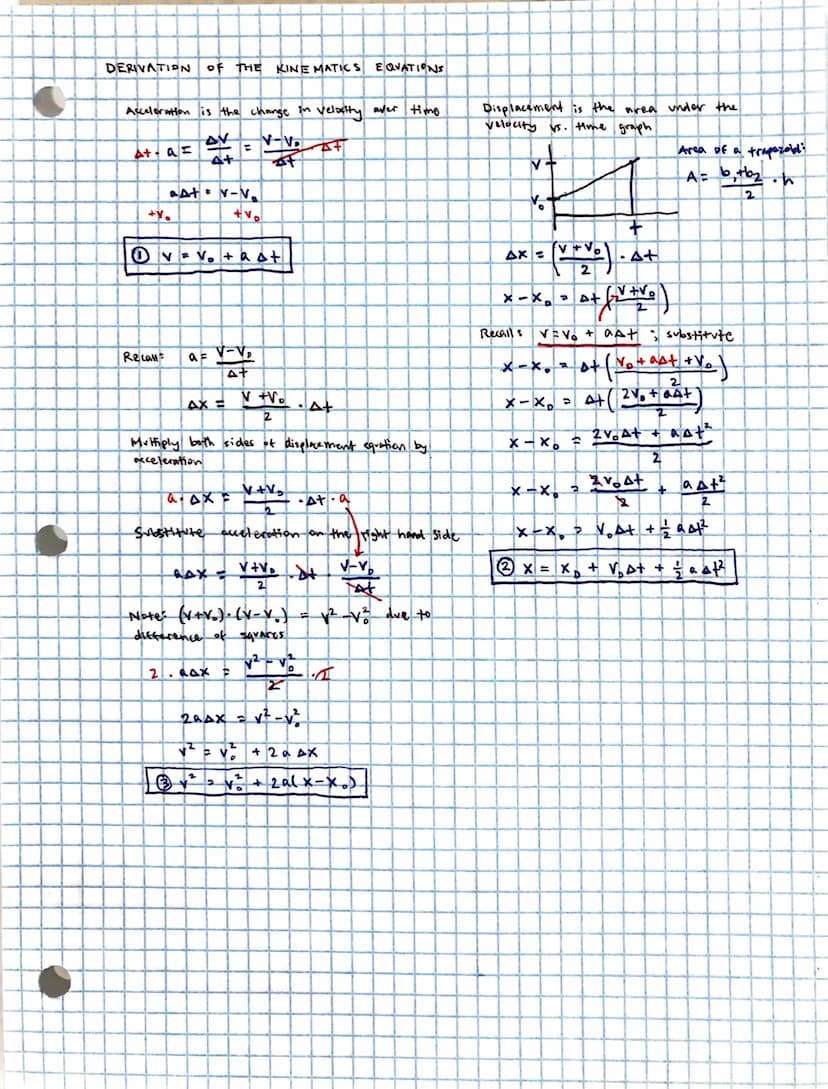 DERIVATION OF THE KINEMATICS EQUATIONS
Acceleration is the change in velocity over time
Δt · a = ΔV/Δt = (V-V₀)/Δt · Δt
aΔt = V-V₀
+V₀ +V₀
① V = V₀ + a Δt
Recall: a = (V-V₀)/Δt
ΔX = (V+V₀)/2 · Δt
Multiply both sides of displacement equation by
acceleration
a · ΔX = (V+V₀)/2 · Δt · a
Substitute acceleration on the right hand side
aΔX = (V+V₀)/2 · Δt · (V-V₀)/Δt
Note: (V+V₀)·(V-V₀) = V²-V₀² due to
difference of squares
2 · aΔX = (V²-V₀²)/2 · 2
2aΔX = V²-V₀²
V² = V₀² + 2a ΔX
③ V² = V₀² + 2a(X-X₀)
Displacement is the area under the
velocity vs. time graph
Area of a trapezoid:
A = (b₁+b₂)/2 · h
V
V₀
t
ΔX = ((V+V₀)/2) · Δt
X-X₀ = Δt ((V+V₀)/2)
Recall: V=V₀ + aΔt ; substitute
X-X₀ = Δt ((V₀+aΔt+V₀)/2)
X-X₀ = Δt ((2V₀+aΔt)/2)
X-X₀ = (2V₀Δt + aΔt²)/2
X-X₀ = 2V₀Δt/2 + aΔt²/2
X-X₀ = V₀Δt + ½ aΔt²
② X = X₀ + V₀Δt + ½ aΔt²